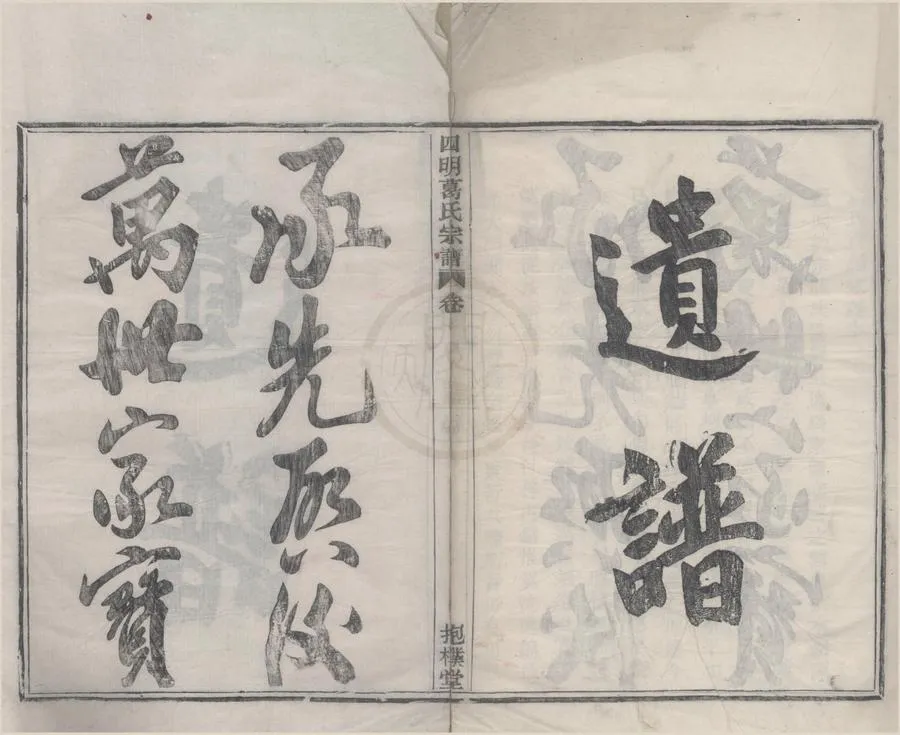 遺譜
四明葛氏宗譜 卷
抱樸堂
承先啓後
萬世家寶